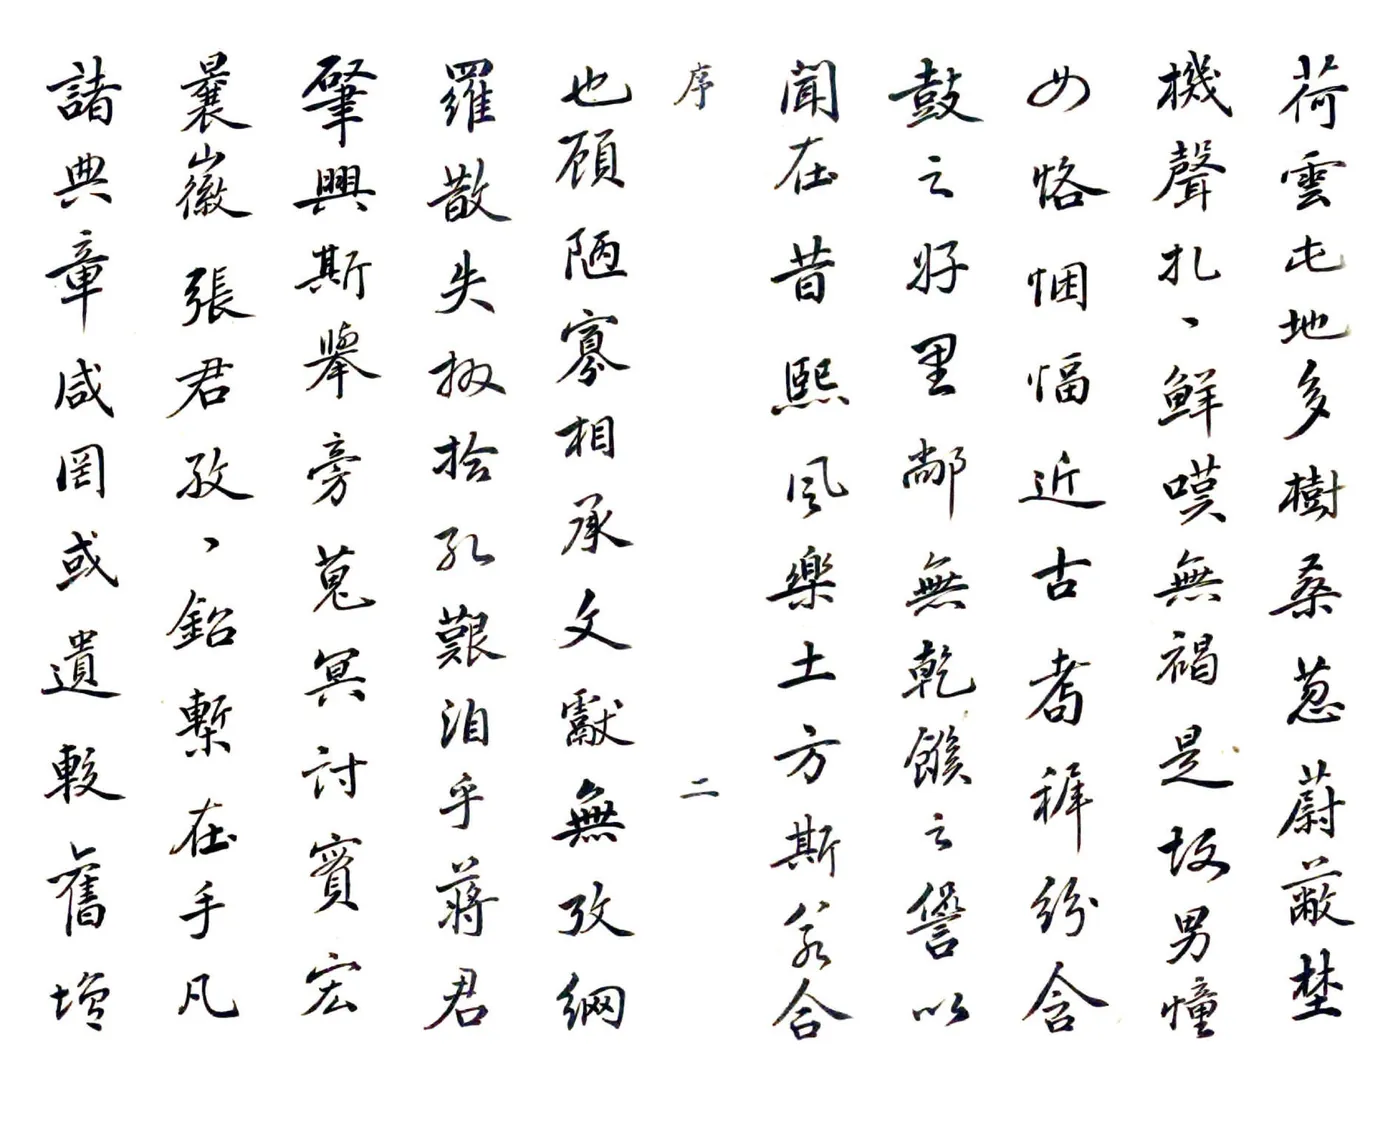 荷雲屯地多樹桑葱蔚蔽埜
機聲扎、鮮嘆無褐是故男憧
女恪悃愊近古耆穉紛含
鼓之好里鄰無乾餱之諐以
聞在昔熙風樂土方斯蔑合
序 二
也顧陋寡相承文獻無攷網
羅散失掇拾孔艱洎乎蔣君
肇興斯舉旁蒐冥討實宏
襄徽張君孜、鉛槧在手凡
諸典章咸罔或遺較舊增